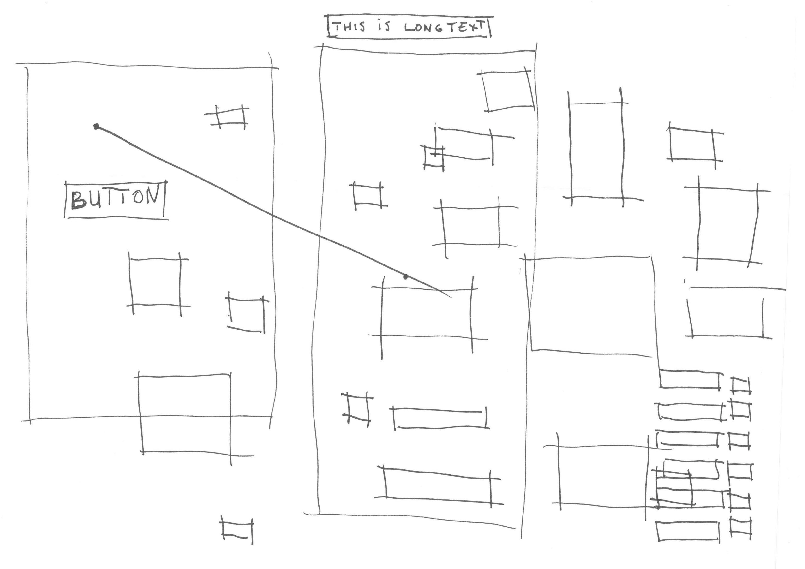 THIS IS LONG TEXT
BUTTON